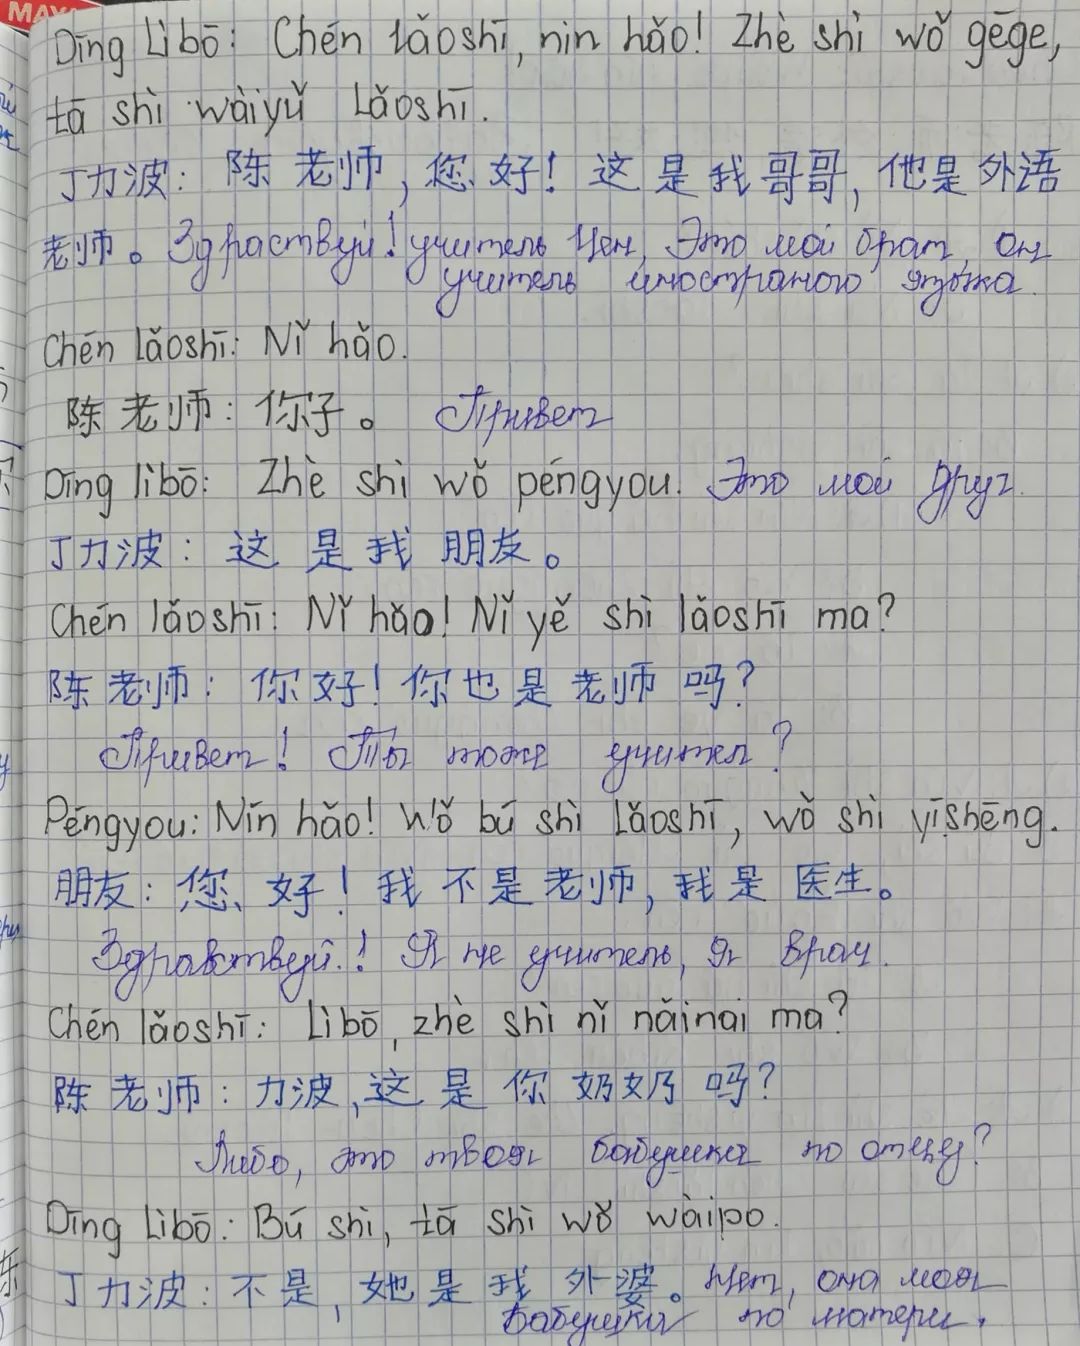 MAY
Dīng Lìbō: Chén lǎoshī, nín hǎo! Zhè shì wǒ gēge,
tā shì wàiyǔ Lǎoshī.
丁力波: 陈老师, 您好! 这是我哥哥, 他是外语
老师。Здраствуй! учитель Чен, Это мой брат, он
учитель иностраного языка.
Chén lǎoshī: Nǐ hǎo.
陈老师: 你子。 Привет
Dīng lìbō: Zhè shì wǒ péngyou. Это мой друг.
丁力波: 这是我朋友。
Chén lǎoshī: Nǐ hǎo! Nǐ yě shì lǎoshī ma?
陈老师: 你好! 你也是老师吗?
Привет! Ты тоже учител?
Péngyou: Nín hǎo! Wǒ bú shì Lǎoshī, wǒ shì yīshēng.
朋友: 您好! 我不是老师, 我是医生。
Здравствуй.! Я не учитель, я врач.
Chén lǎoshī: Lìbō, zhè shì nǐ nǎinai ma?
陈老师: 力波, 这是你奶奶吗?
Либо, это твоя бабушка по отцу?
Dīng Lìbō: Bú shì, tā shì wǒ wàipo.
丁力波: 不是, 她是我外婆。Нет, она моя
бабушка по матери.